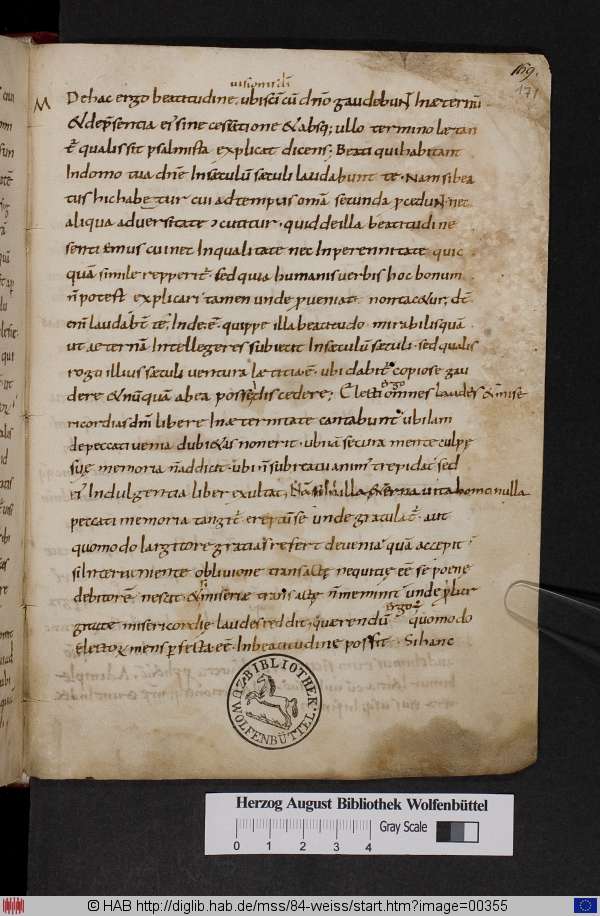 169.
171
visionis dĩ
M
De hac ergo beatitudine, ubi sc̃i cũ dño gaudebuñ In æternũ
& de p̃sentia ei' sine cessatione & absq; ullo termino lætan
t̃ qualis sit psalmista explicat dicens; Beati qui habitant
In domo tua dñe In sæculũ sæculi laudabunt te. Nam si bea
tus hic habetur cui ad tempus om̃a secunda pcedun̄ nec
aliqua adversitate ɔcutitur. quid de illa beatitudine
senti emus cui nec In qualitate nec In perennitate quic
quã simile repperit̃. sed quia humanis verbis hoc bonum
ñ potest explicari tamen unde pveniat. non tac&ur; dc̃
em̃ laudabt̃ te; Inde.ẽ. quippe illa beatitudo. mirabilis quã
ut æternã Intellegeres subiecit In sæculũ sæculi. sed qualis
rogo illius sæculi ventura lætitia ẽ. ubi dabit̃ copiose gau
dere & nũquã ab ea posse discedere; Electi ergo omnes laudes & mise
ricordias dñi libere In æternitate cantabunt ubi lam
de peccati venia dubi&as non erit. ubi iã secura mente culpę
suę memoria ñ addicit. ubi ñ sub reatu anim' trepidat sed
ei' Indulgentia liber exultat,
peccati memoria tangit̃ ereptũ se unde gratulat̃. aut
quomodo largitori gratias refert de venia quã accepit
si Interveniente oblivione transactę nequitię ẽe se poene
debitorẽ nescit & miserię transactę ñ meminit unde plar
gitate misericordię laudes reddit. querendũ ergo ẽ quomodo
Electoꝝ mens pfecta ẽe In beatitudine possit. Si hanc
BIBLIOTHEK
ZU WOLFENBÜTTEL
Herzog August Bibliothek Wolfenbüttel
0 1 2 3 4 Gray Scale
© HAB http://diglib.hab.de/mss/84-weiss/start.htm?image=00355